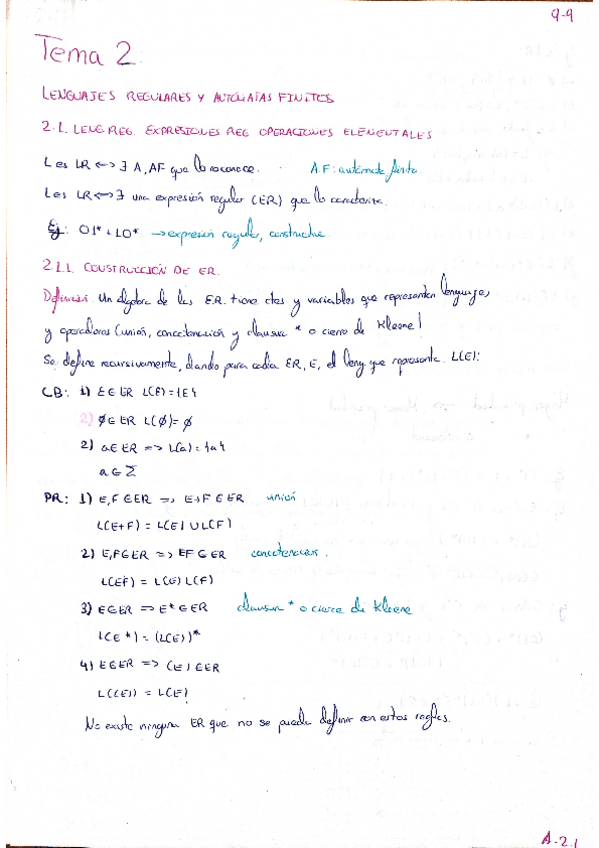 9-9
Tema 2:
LENGUAJES REGULARES Y AUTÓMATAS FINITOS
2.1. LENG. REG. EXPRESIONES REG. OPERACIONES ELEMENTALES
L es LR <-> ∃ A, AF que lo reconoce. A.F: autómata finito.
L es LR <-> ∃ una expresión regular (ER) que lo caracteriza.
Ej: 01* + 10* → expresión regular, constructiva
2.1.1. CONSTRUCCIÓN DE ER.
Definición. Un álgebra de las E.R. tiene ctes y variables que representan lenguajes,
y operadores (unión, concatenación y clausura * o cierre de Kleene)
Se define recursivamente, dando para cada ER, E, el leng que representa. L(E):
CB: 1) ε ∈ ER L(ε) = {ε}
2) ∅ ∈ ER L(∅) = ∅
2) a ∈ ER => L(a) = {a}
a ∈ Σ
PR: 1) E, F ∈ ER => E+F ∈ ER unión
L(E+F) = L(E) ∪ L(F)
2) E, F ∈ ER => EF ∈ ER concatenación.
L(EF) = L(E) L(F)
3) E ∈ ER => E* ∈ ER clausura * o cierre de Kleene
L(E*) = (L(E))*
4) E ∈ ER => (E) ∈ ER
L((E)) = L(E)
No existe ninguna ER que no se pueda definir con estas reglas.
A-2.1